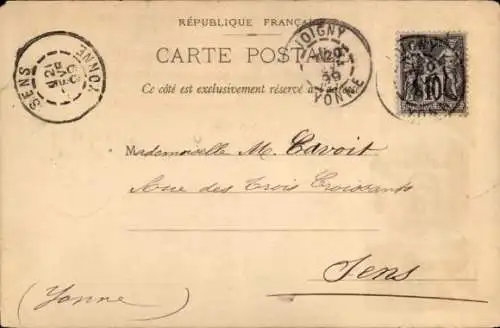 RÉPUBLIQUE FRANÇAISE
CARTE POSTALE
Ce côté est exclusivement réservé à l'adresse
JOIGNY
YONNE
SENS
YONNE
JOIGNY
10
Mademoiselle M. Cavoit
Rue des Trois Croissants
Sens
(Yonne)